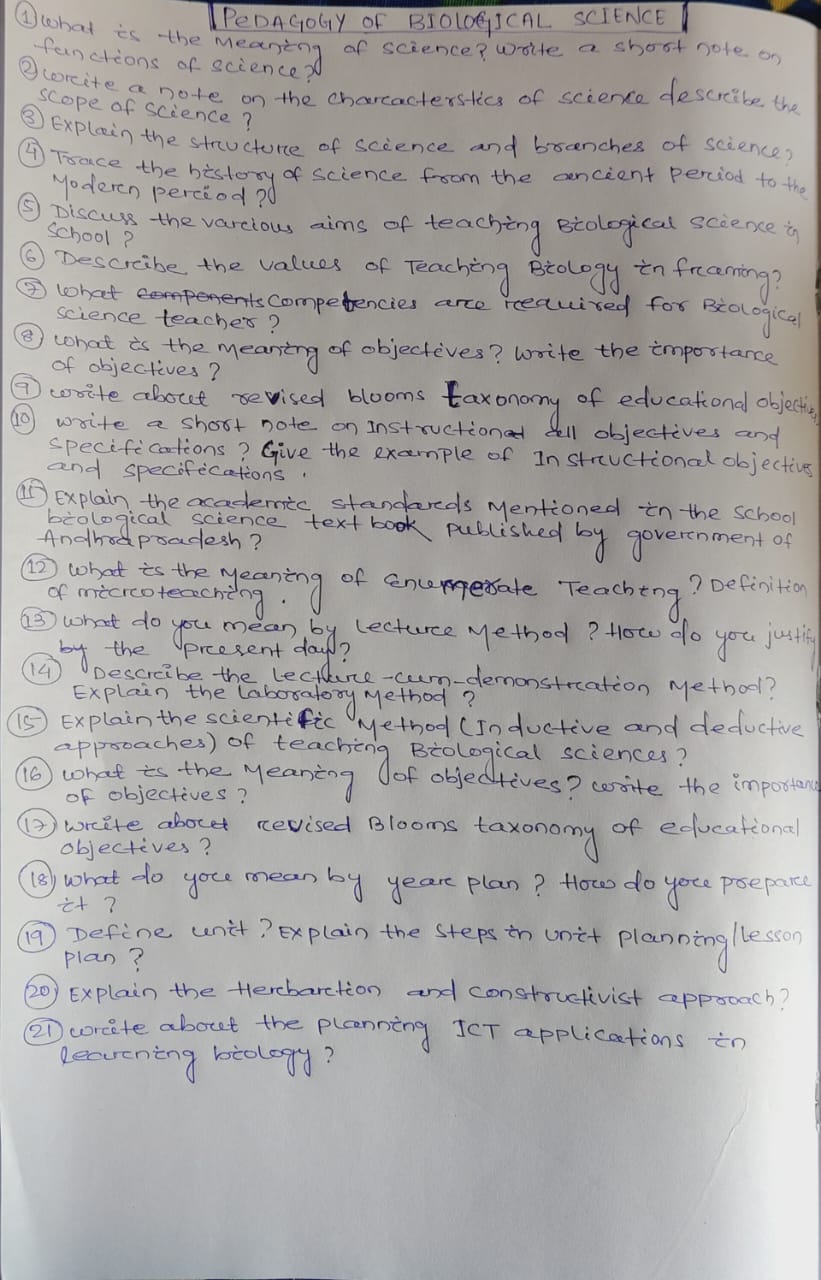 PEDAGOGY OF BIOLOGICAL SCIENCE
① What is the Meaning of science? Write a short note on
functions of science?
② Write a note on the characterstics of science describe the
scope of science?
③ Explain the structure of science and branches of science?
④ Trace the history of science from the ancient period to the
Modern period?
⑤ Discuss the various aims of teaching Biological science in
School?
⑥ Describe the values of Teaching Biology in framing?
⑦ What components Competencies are required for Biological
science teacher?
⑧ What is the meaning of objectives? Write the importance
of objectives?
⑨ Write about revised blooms taxonomy of educational objectives
⑩ write a short note on Instructional all objectives and
specifications? Give the example of Instructional objectives
and specifications.
⑪ Explain the academic standards Mentioned in the school
biological science text book published by government of
Andhrapradesh?
⑫ What is the Meaning of Teaching? Definition
of microteaching.
⑬ What do you mean by Lecture Method? How do you justify
by the present day?
⑭ Describe the Lecture-cum-demonstration Method?
Explain the Laboratory Method?
⑮ Explain the scientific Method (Inductive and deductive
approaches) of teaching Biological sciences?
⑯ What is the Meaning of objectives? write the importance
of objectives?
⑰ Write about revised Blooms taxonomy of educational
objectives?
⑱ What do you mean by year plan? How do you prepare
it?
⑲ Define unit? Explain the steps in unit planning/Lesson
plan?
⑳ Explain the Herbarction and constructivist approach?
㉑ Write about the planning ICT applications in
learning biology?